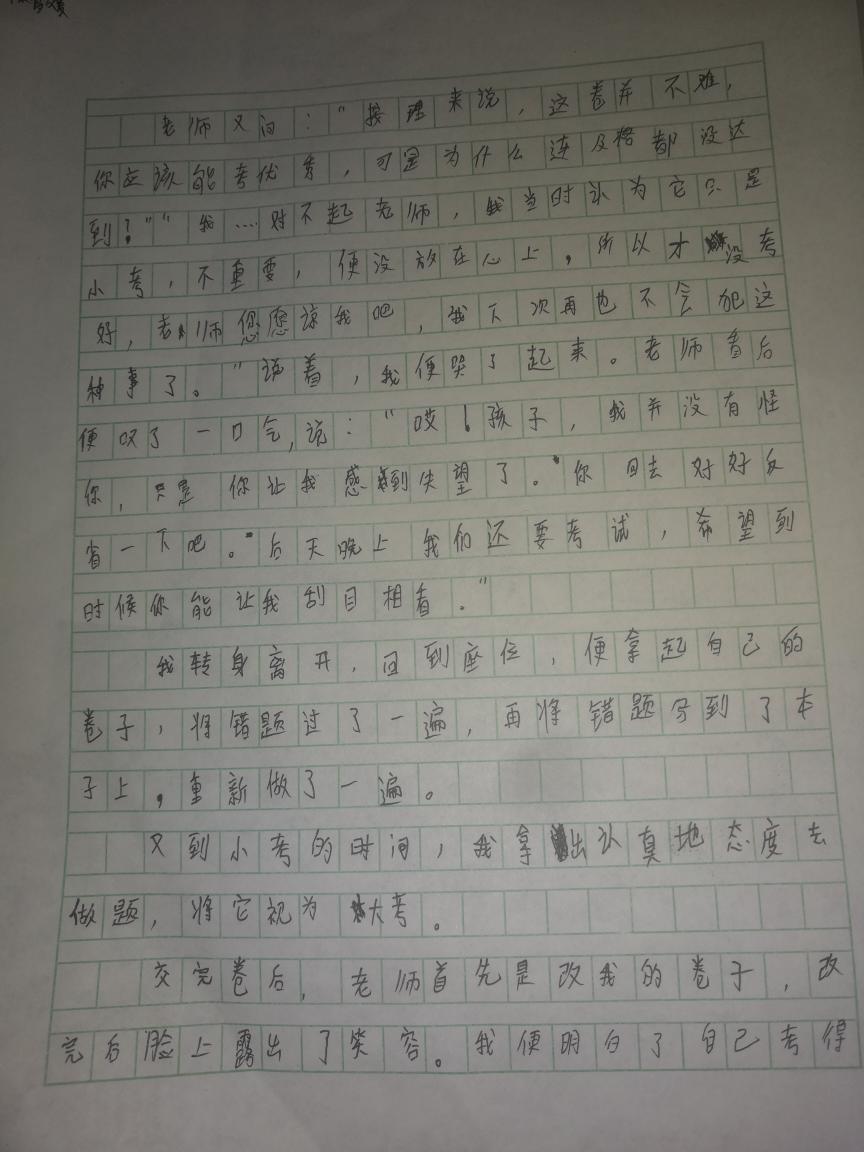 老师又问："按理来说，这卷并不难，
你应该能考优秀，可是为什么连及格都没达
到？""我……对不起老师，我当时认为它只是
小考，不重要，便没放在心上，所以才没考
好，老师您愿谅我吧，我下次再也不会犯这
种事了。"说着，我便哭了起来。老师看后
便叹了一口气，说："哎！孩子，我并没有怪
你，只是你让我感到失望了。"你回去好好反
省一下吧。"后天晚上我们还要考试，希望到
时候你能让我刮目相看。"
我转身离开，回到座位，便拿起自己的
卷子，将错题过了一遍，再将错题写到了本
子上，重新做了一遍。
又到小考的时间，我拿出认真地态度去
做题，将它视为大考。
交完卷后，老师首先是改我的卷子，改
完后脸上露出了笑容。我便明白了自己考得